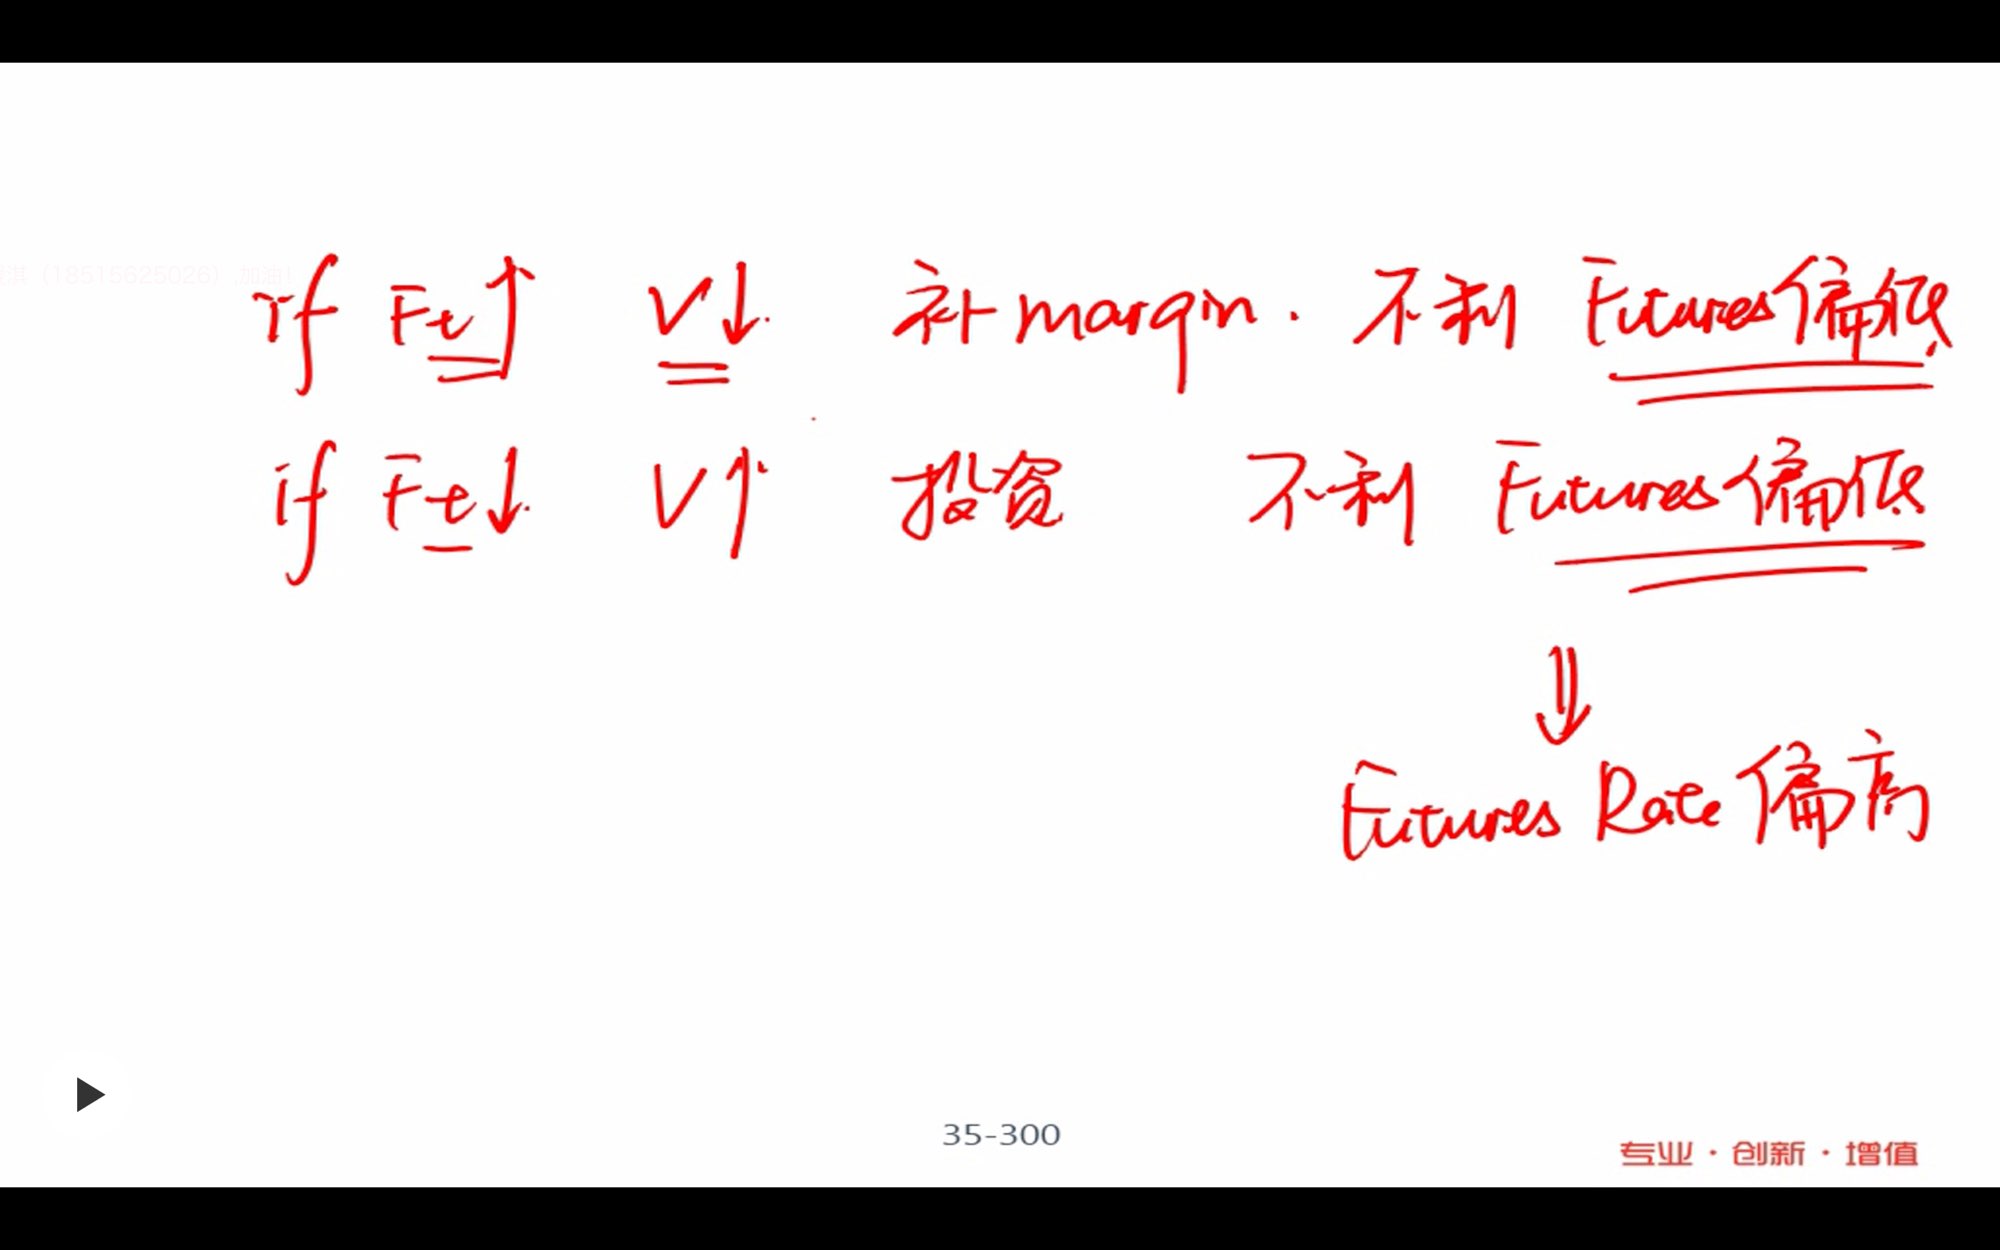 if Ft↑ V↓. 补margin. 不利 Futures偏低
淇（18515625026）,加油！
if Ft↓. V↑ 投资 不利 Futures偏低
⇓
Futures Rate 偏高
35-300
专业·创新·增值